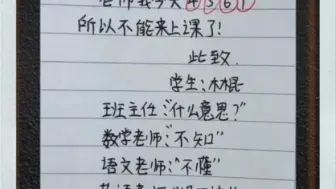 老师我今天4361
所以不能来上课了!
此致
学生:木棍
班主任:"什么意思?"
数学老师:"不知"
语文老师:"不懂"